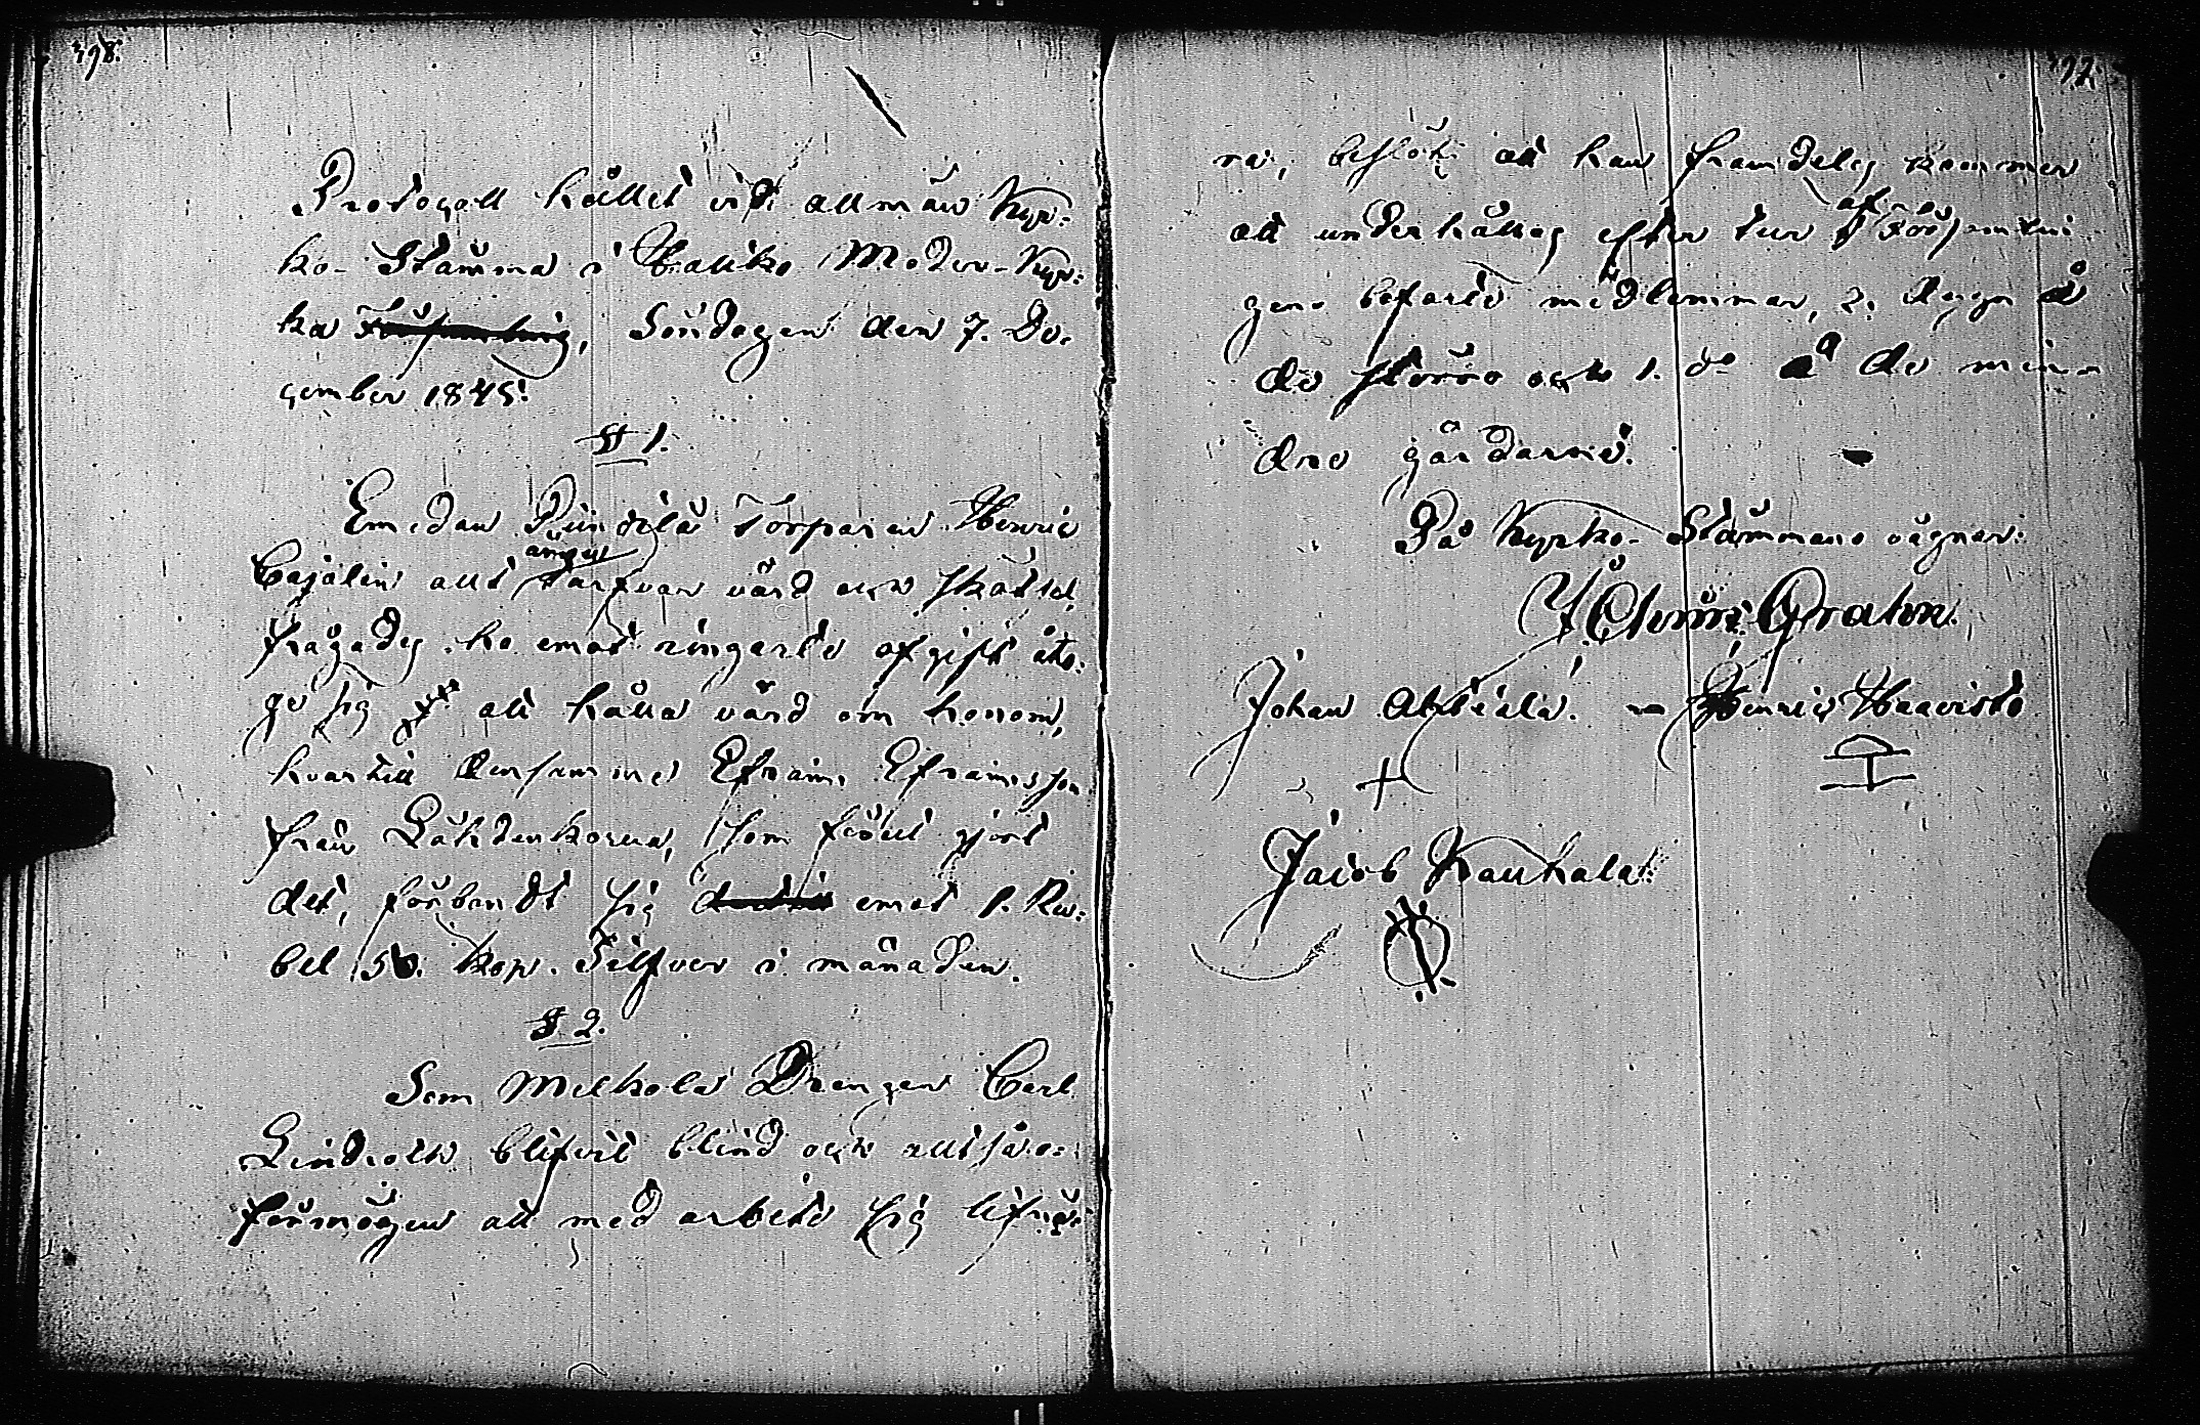 398.
Protocoll hållet vid allmän Kyr-
ko-Stämma i Halikko Moder-Kyr-
ka Församling, Söndagen den 7. De-
cember 1845.
§ 1.
Emedan Torparen Henric
Cajalin allt ännu tarfvar vård och skötsel,
frågades, ho emot ringaste afgift åto-
ge sig att hålla vård om honom,
hvartill densamme Efraim Efraimsson
från Lähdenkorva, som förut gjort
det, förbandt sig emot 1. Ru-
bel 50. kop. Silfver i månaden.
§ 2.
Som Melkola Drengen Carl
Lindroth blifvit blind och alltså o-
förmögen att med arbete sig lifnä-
ra, beslöts att han framdeles kommer
att underhållas efter tur af Försmlin-
gens besuttne medlemmar, 2. dygn å
de större och 1. d:o å de min-
dre gårdarne.
På Kyrko-Stämmans vägnar:
Grahn.
Johan Henric Haavisto
Jacob Kaukala